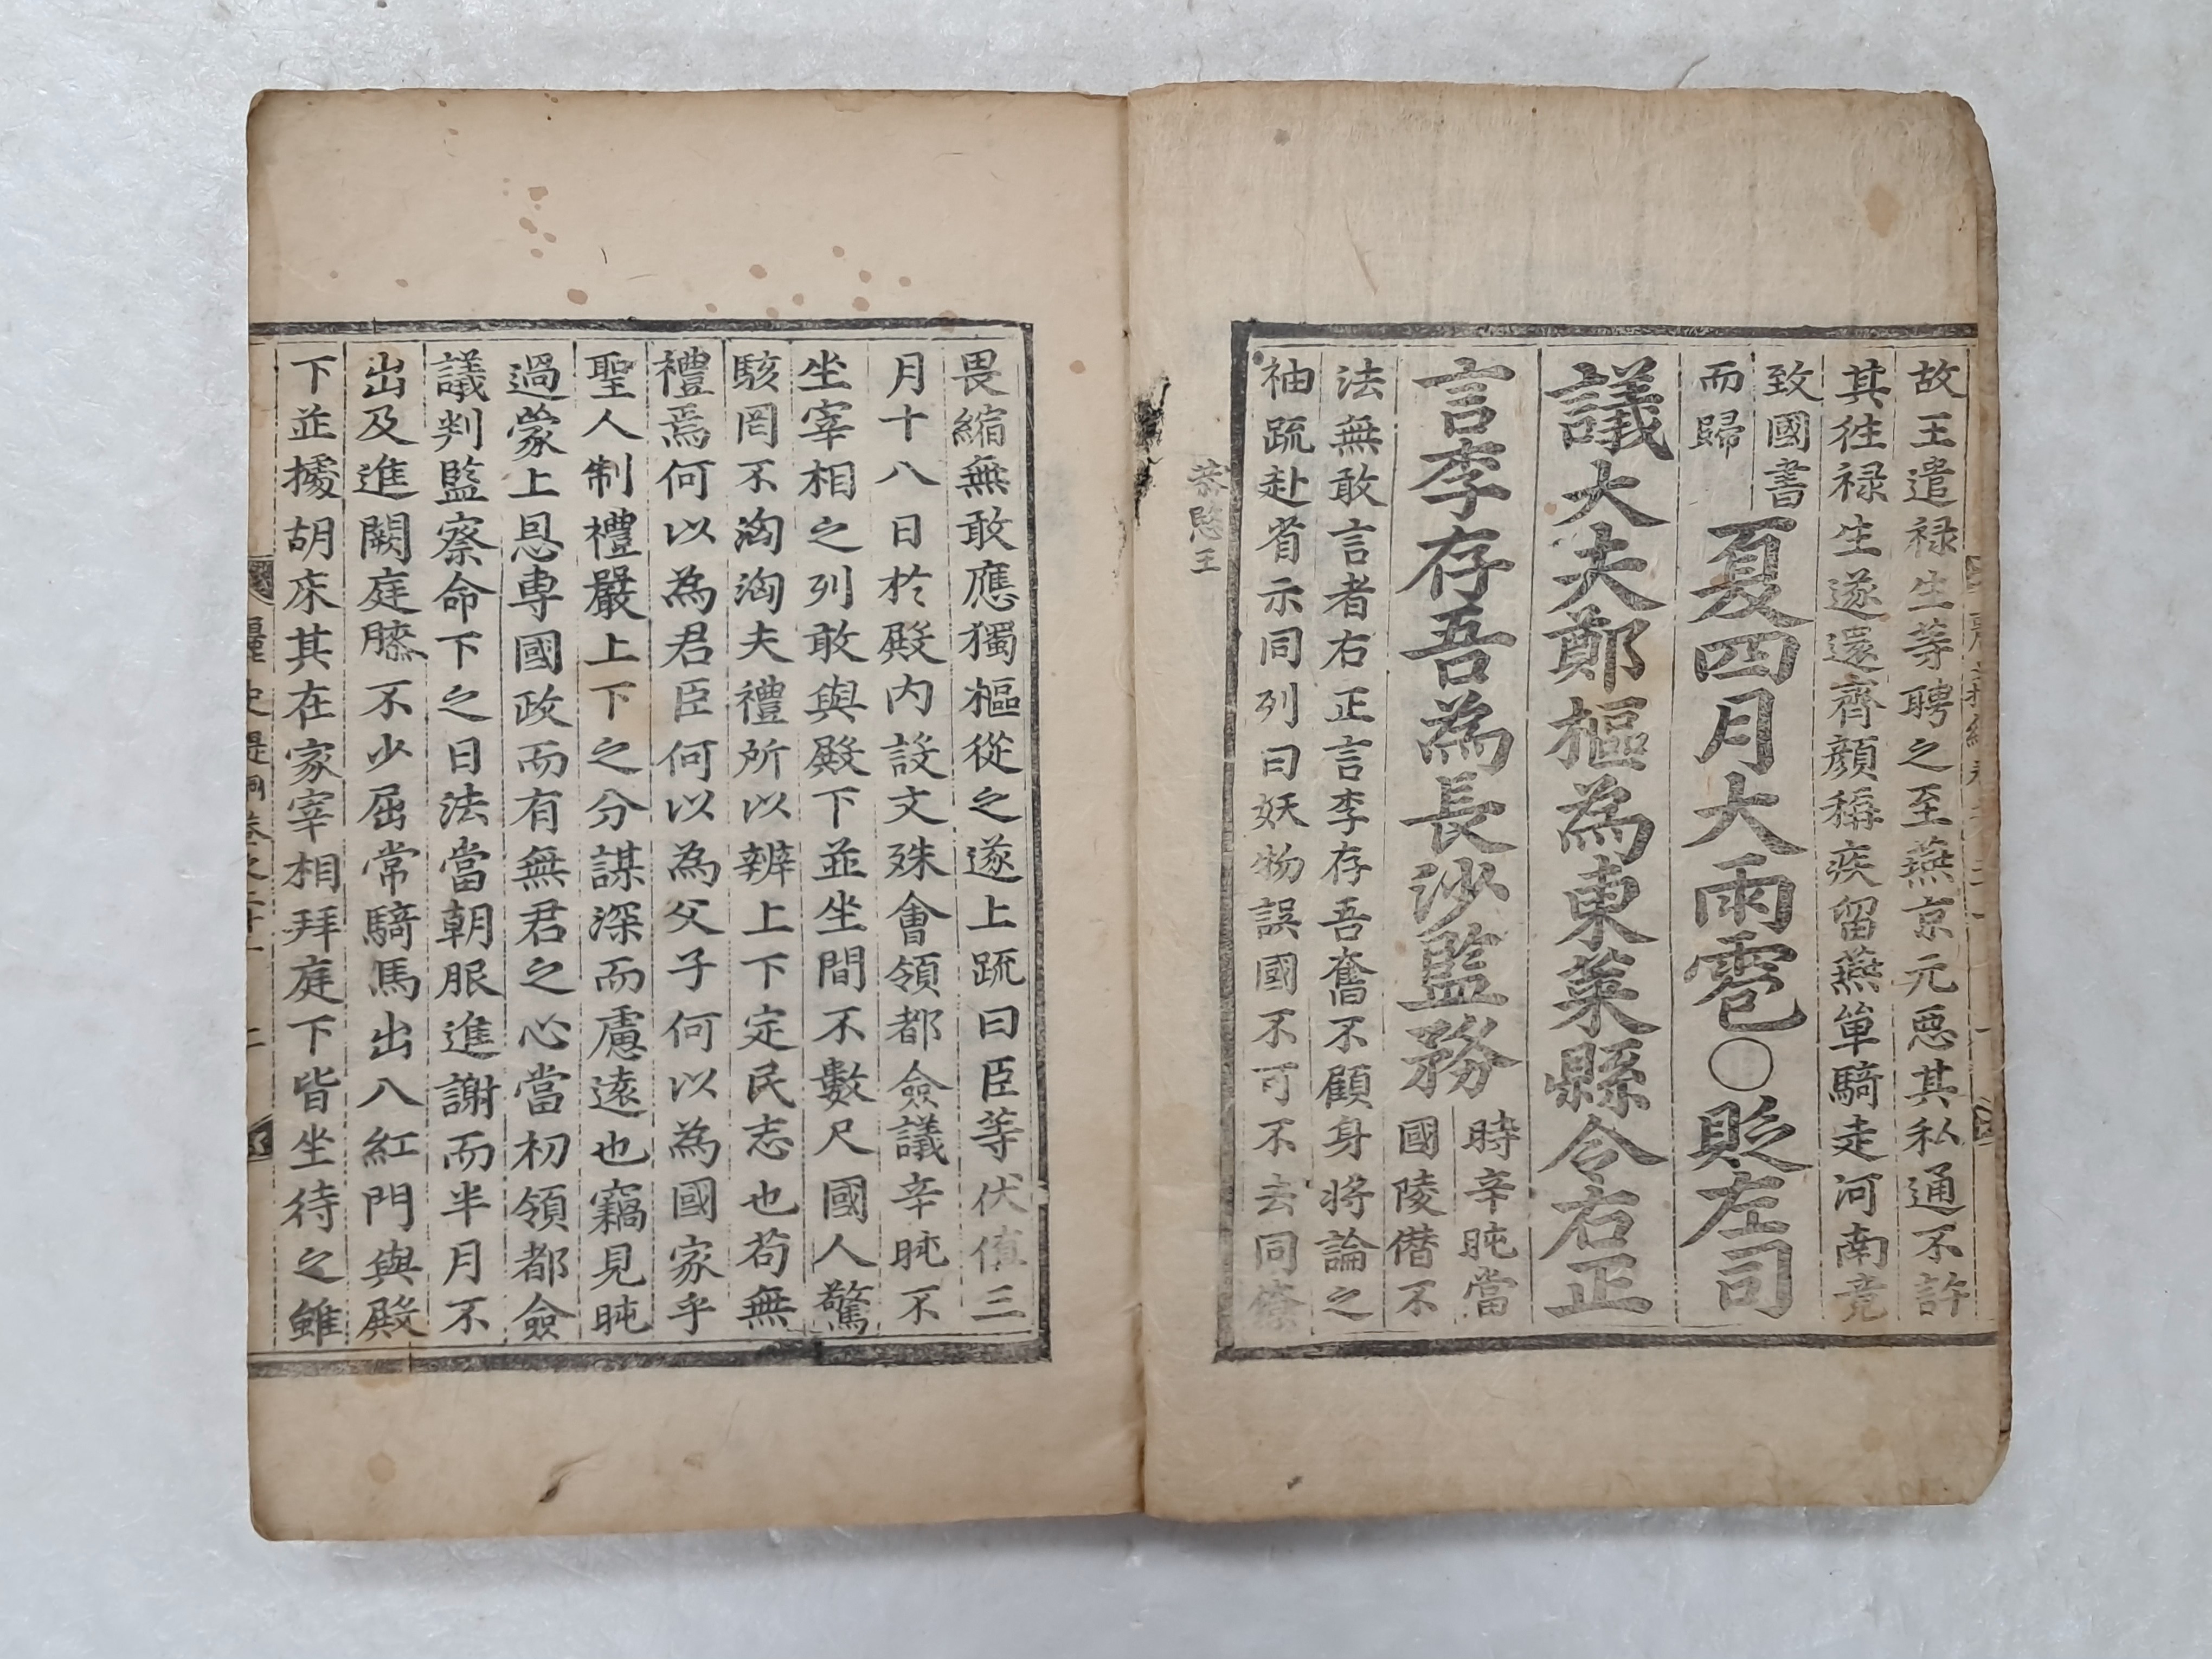 故王遣禄生等聘之至燕京元惡其私通不許
其徃禄生遂還齊顔稱疾留燕单騎走河南竟
致國書
而歸
夏四月大雨雹○貶左司
議大夫鄭樞為東萊縣令右正
言李存吾為長沙監務
時辛旽當
國陵僣不
法無敢言者右正言李存吾奮不顧身将論之
袖疏赴省示同列曰妖物誤國不可不去同僚
恭愍王
畏縮無敢應獨樞從之遂上疏曰臣等伏值三
月十八日於殿内設文殊會領都僉議辛旽不
坐宰相之列敢與殿下並坐間不數尺國人驚
駭罔不洶洶夫禮所以辨上下定民志也苟無
禮焉何以為君臣何以為父子何以為國家乎
聖人制禮嚴上下之分謀深而慮遠也竊見旽
過蒙上恩専國政而有無君之心當初領都僉
議判監察命下之日法當朝服進謝而半月不
出及進闕庭膝不少屈常騎馬出入紅門與殿
下並據胡床其在家宰相拜庭下皆坐待之雖